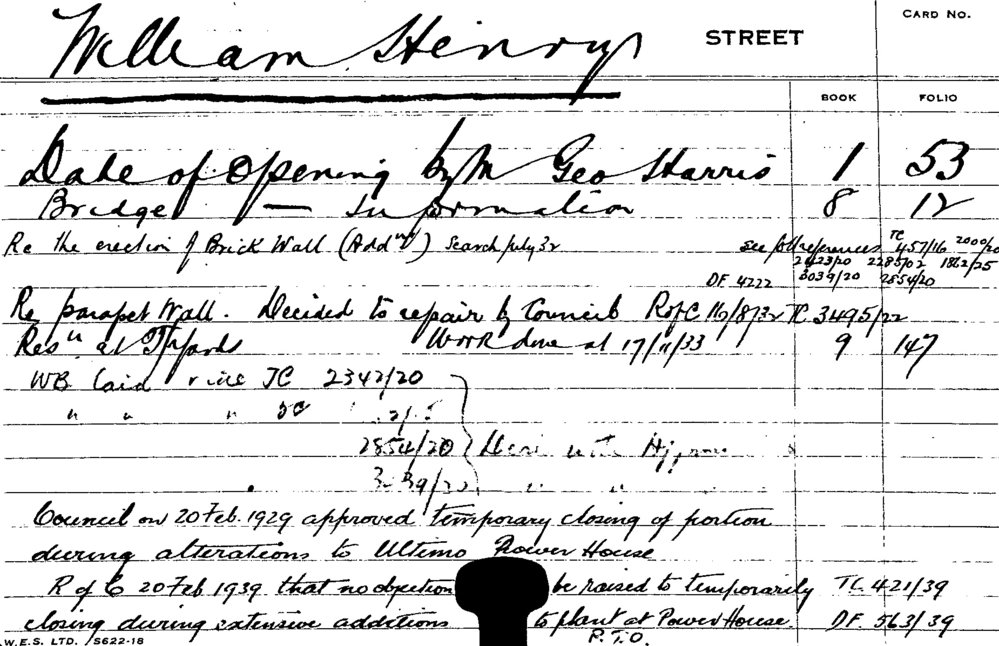 CARD NO.
William Henry STREET
BOOK FOLIO
Date of Opening by Mr Geo Harris 1 53
Bridge — Information 8 12
Re the erection of Brick Wall (Addnl) Search July 32 see foll references TC 457/16 2000/20
2423/20 2285/02 1862/25
DF 4222 3039/20 2854/20
Re parapet Wall. Decided to repair by Council R of C 16/8/32 TC 3495/22
Resn at Work done at 17/11/33 9 147
WB laid vide TC 2342/20
" " " TC
2854/20
" "
Council on 20 Feb. 1929 approved temporary closing of portion
during alterations to Ultimo Power House
R of C 20 Feb 1939 that no objection be raised to temporarily TC 421/39
closing during extensive additions to plant at Power House. DF. 563/39
W.E.S. LTD. / S622-18 P.T.O.